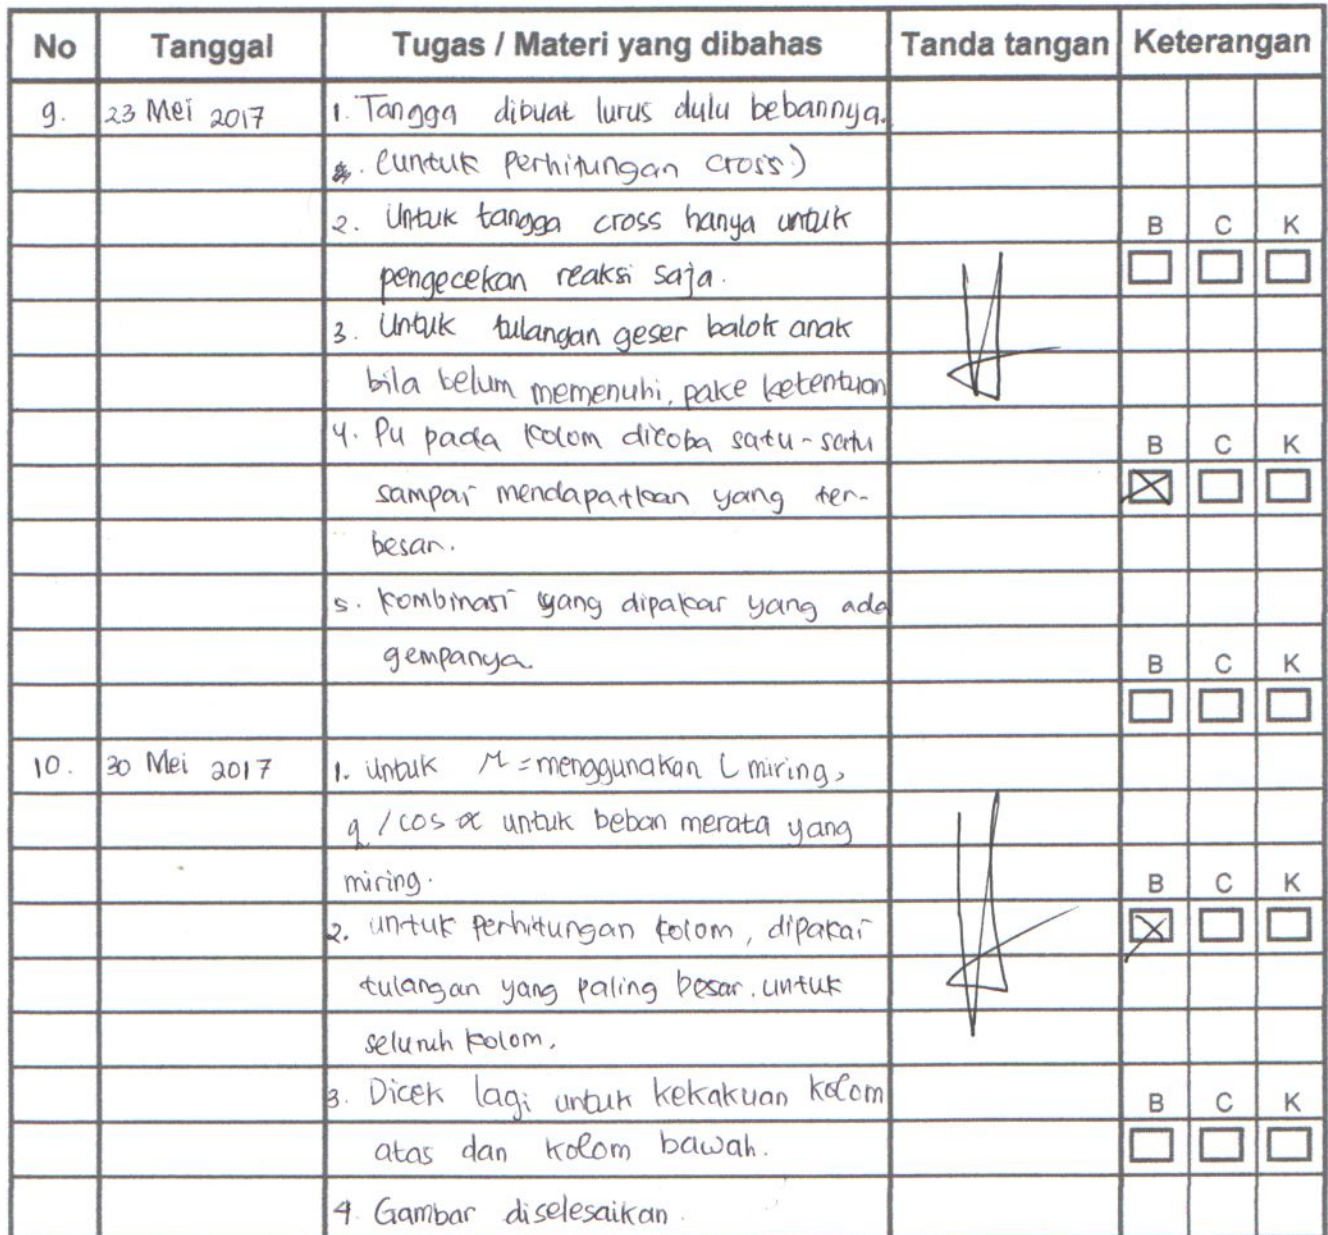 No Tanggal Tugas / Materi yang dibahas Tanda tangan Keterangan
9. 23 Mei 2017 1. Tangga dibuat lurus dulu bebannya.
(untuk perhitungan cross)
2. Untuk tangga cross hanya untuk
B C K
pengecekan reaksi saja.
3. Untuk tulangan geser balok anak
bila belum memenuhi, pake ketentuan
4. Pu pada kolom dicoba satu-satu
B C K
sampai mendapatkan yang ter-
besar.
5. kombinasi yang dipakai yang ada
gempanya.
B C K
10. 30 Mei 2017 1. untuk M = menggunakan L miring,
q / cos α untuk beban merata yang
miring.
B C K
2. untuk perhitungan kolom, dipakai
tulangan yang paling besar. untuk
seluruh kolom.
3. Dicek lagi untuk kekakuan kolom
B C K
atas dan kolom bawah.
4. Gambar diselesaikan.